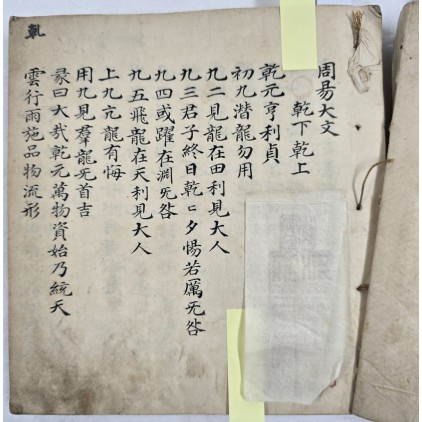 周易大文
乾下乾上
乾元亨利貞
初九潛龍勿用
九二見龍在田利見大人
九三君子終日乾〻夕惕若厲旡咎
九四或躍在淵旡咎
九五飛龍在天利見大人
上九亢龍有悔
用九見羣龍旡首吉
彖曰大㢤乾元萬物資始乃統天
雲行雨施品物流形
乹